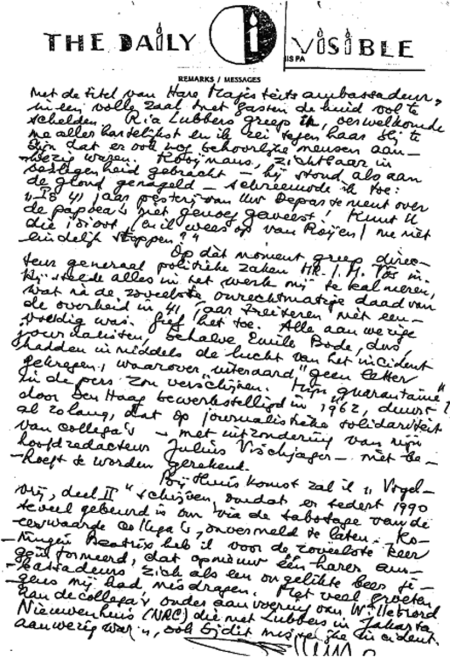 THE DAILY i VISIBLE
IS PA
REMARKS / MESSAGES
met de titel van Hare Majesteits ambassadeur,
in een volle zaal met gasten de huid vol te
schelden. Ria Lubbers greep in, verwelkomde
me aller hartelijkst en ik zei tegen haar blij te
zijn dat er ook nog behoorlijke mensen aan-
wezig waren. Kooijmans, zichtbaar in
verlegenheid gebracht – hij stond als aan
de grond genageld – schreeuwde ik toe:
41 jaar pesterij van Uw Departement over
de papoea's niet genoeg geweest! Kunt U
die idioot, en ik wees op van Roijen, nu niet
eindelijk stoppen?"
Op dat moment greep direc-
teur generaal politieke zaken Mr. in.
Hij stelde alles in het werk mij te kalmeren,
wat na de zoveelste onrechtmatige daad van
de overheid in 41 jaar treiteren niet een-
voudig was. het toe. Alle aanwezige
journalisten, behalve Emile Bode, dus,
hadden inmiddels de lucht van het incident
gekregen, waarover "uiteraard" geen letter
in de pers zou verschijnen. Mijn "quarantaine",
door Den Haag bewerkstelligd in 1962, duurt
al zolang, dat op journalistieke solidariteit
van collega's – met uitzondering van mijn
hoofdredacteur Julius Vischjager – niet be-
hoeft te worden gerekend.
Bij thuiskomst zal ik " Vogel-
vrij, deel II" schrijven, omdat er sedert 1990
teveel gebeurd is om via de sabotage van de
eerwaarde collega's, onvermeld te laten. Ko-
ningin Beatrix heb ik voor de zoveelste keer
geïnformeerd, dat opnieuw één harer am-
bassadeurs zich als een ongelikte beer je-
gens mij had misdragen. Met veel groeten
aan de collega's onder aanvoering van Willebrord
Nieuwenhuis (NRC) die met Lubbers in Jakarta
aanwezig war'n, ook bij dit incident.